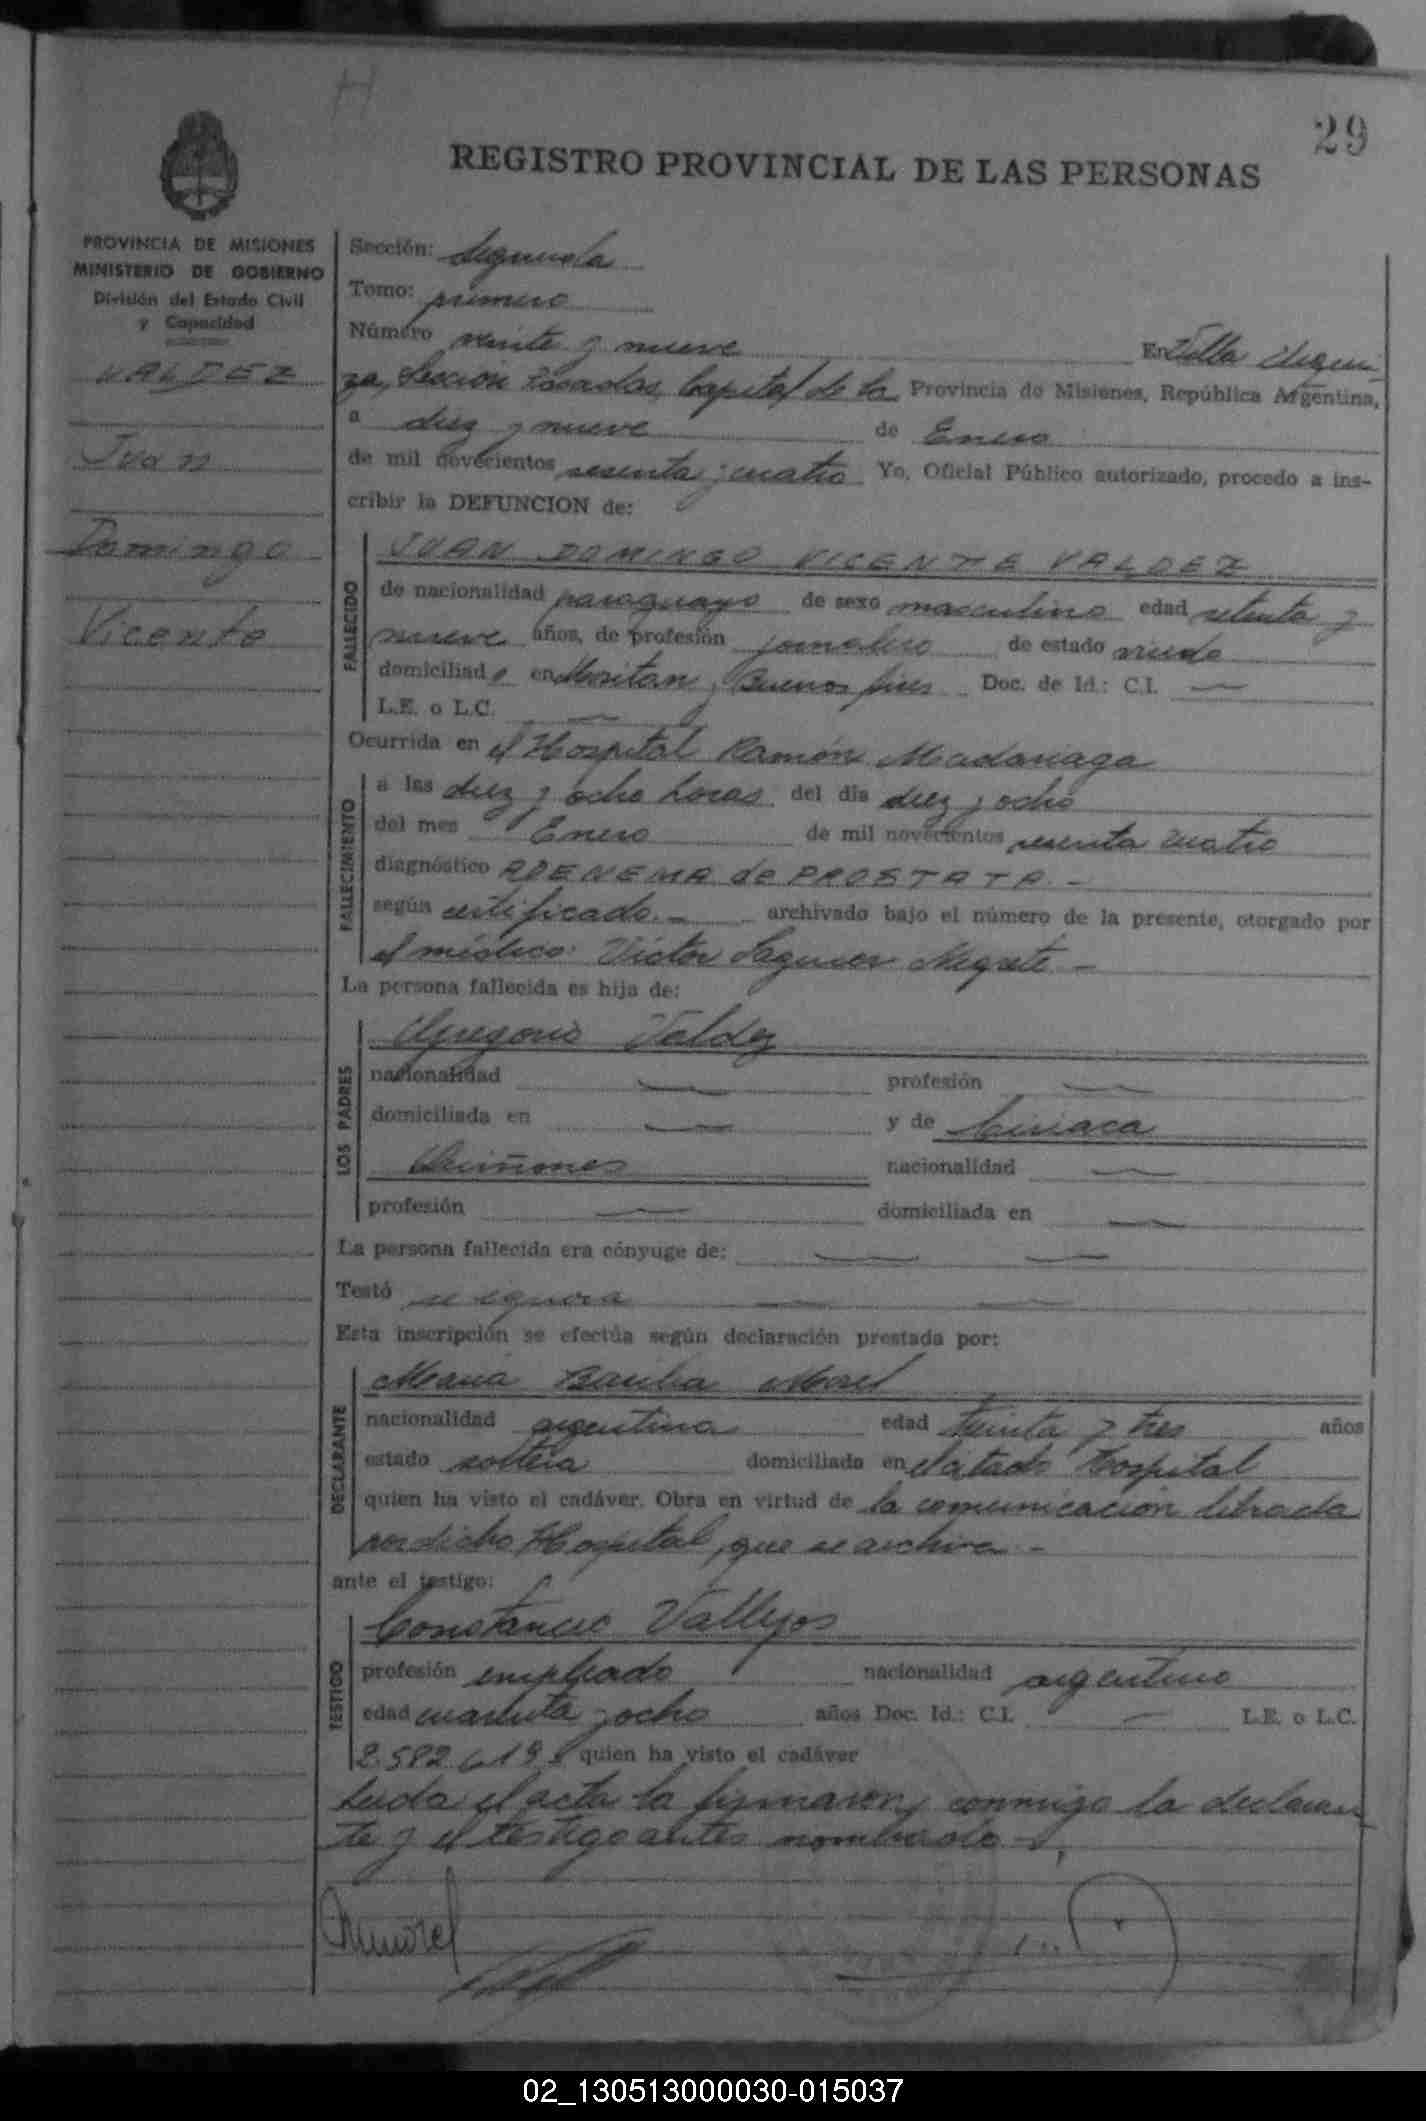 H
29
REGISTRO PROVINCIAL DE LAS PERSONAS
PROVINCIA DE MISIONES
MINISTERIO DE GOBIERNO
División del Estado Civil
y Capacidad
VALDEZ
Juan
Domingo
Vicente
Sección: Segunda
Tomo: primero
Número veinte y nueve En Villa Urqui-
za, Sección Posadas, Capital de la Provincia de Misiones, República Argentina,
a diez y nueve de Enero
de mil novecientos sesenta y cuatro Yo, Oficial Público autorizado, procedo a ins-
cribir la DEFUNCION de:
FALLECIDO
JUAN DOMINGO VICENTE VALDEZ
de nacionalidad paraguayo de sexo masculino edad setenta y
nueve años, de profesión jornalero de estado viudo
domiciliado en Moritan y Buenos Aires Doc. de Id.: C.I. —
L.E. o L.C. —
Ocurrida en el Hospital Ramón Madariaga
FALLECIMIENTO
a las diez y ocho horas del día diez y ocho
del mes Enero de mil novecientos sesenta cuatro
diagnóstico ADENEMA de PROSTATA. -
según certificado. - archivado bajo el número de la presente, otorgado por
el médico: Victor Saguier Negrete -
La persona fallecida es hija de:
LOS PADRES
Gregorio Valdez
nacionalidad — profesión —
domiciliada en — y de Ciriaca
Quiñones nacionalidad —
profesión — domiciliada en —
La persona fallecida era cónyuge de: — —
Testó se ignora — —
Esta inscripción se efectúa según declaración prestada por:
DECLARANTE
Maria Morel
nacionalidad argentina edad treinta y tres años
estado soltera domiciliada en el citado Hospital
quien ha visto el cadáver. Obra en virtud de la comunicación librada
por dicho Hospital, que se archiva -
ante el testigo:
TESTIGO
Constancio Vallejos
profesión empleado nacionalidad argentino
edad cuarenta y ocho años Doc. Id.: C.I. — L.E. o L.C.
2.582.619 quien ha visto el cadáver
Leida el acta la firmaron conmigo la declaran-
te y el testigo antes nombrado -
Morel
02_130513000030-015037